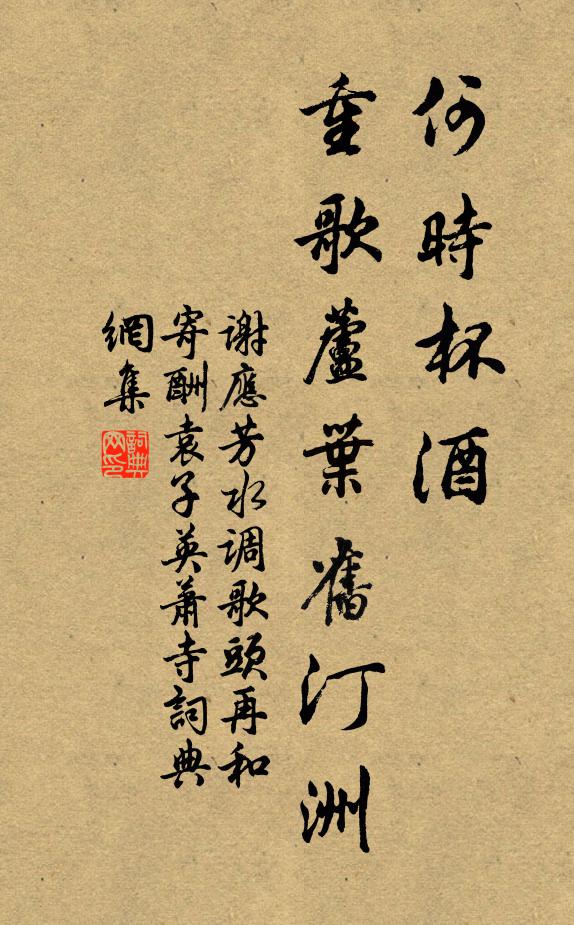 何時杯酒
重歌蘆葉舊汀洲
謝應芳水调歌頭再和
寄酬袁子英蕭寺詞典
網集
詞典網印